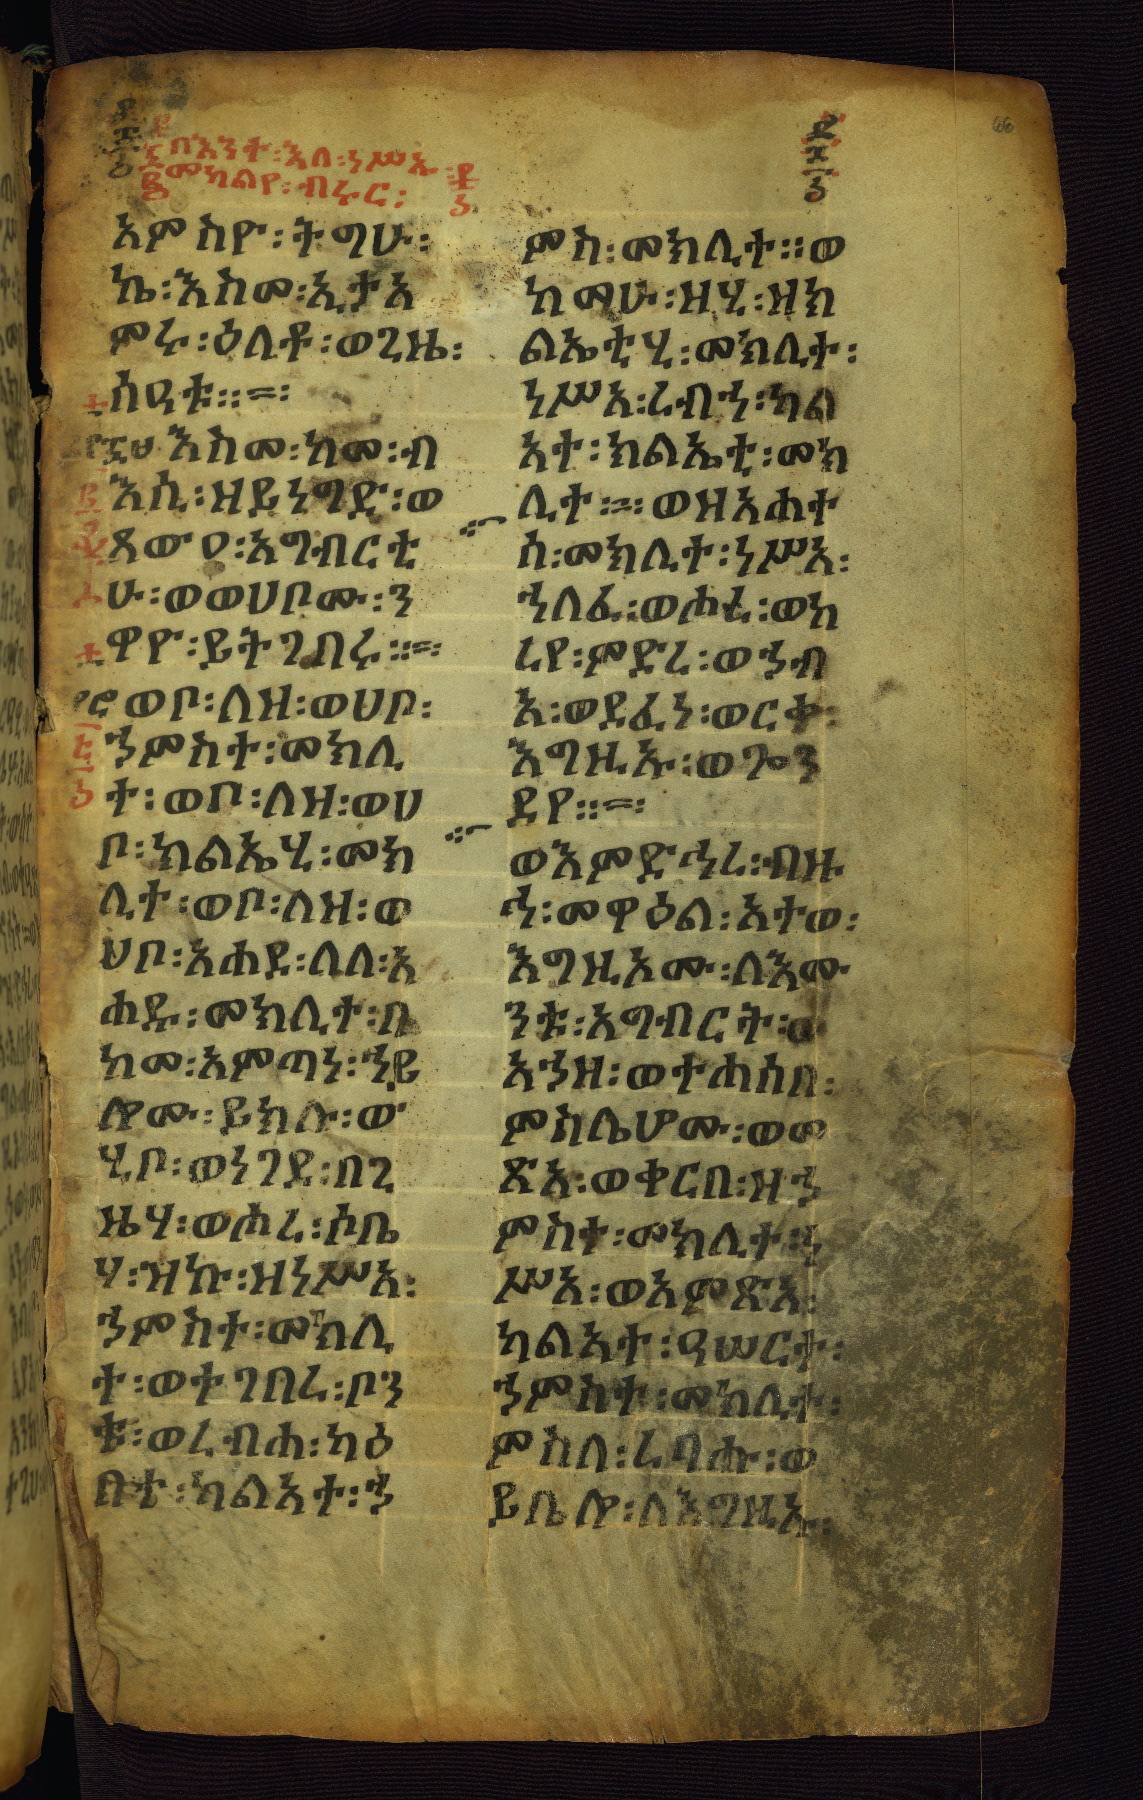 በእንተ፡እለ፡ነሥኡ፡
መክልየ፡ብሩር፡
እምስዮ፡ትግሁ፡
ኬ፡እስመ፡ኢታአ
ምሩ፡ዕለቶ፡ወጊዜ፡
ሰዓቱ።=፡
እስመ፡ከመ፡ብ
እሲ፡ዘይነግድ፡ወ
ጸውዐ፡አግብርቲ
ሁ፡ወወሀቦሙ፡ን
ዋዮ፡ይትገበሩ።=፡
ወቦ፡ለዝ፡ወሀቦ፡
ኀምስተ፡መክሊ
ተ፡ወቦ፡ለዝ፡ወሀ
ቦ፡ክልኤሂ፡መክ
ሊተ፡ወቦ፡ለዝ፡ወ
ሀቦ፡አሐደ፡ለለ፡አ
ሐዱ፡መክሊተ፡በ
ከመ፡አምጣነ፡ኀይ
ሎሙ፡ይክሉ፡ወ
ሂቦ፡ወነገደ፡በጊ
ዜሃ፡ወሖረ፡ሶቤ
ሃ፡ዝኩ፡ዘነሥአ፡
ኀምስተ፡መክሊ
ተ፡ወተገበረ፡ቦን
ቱ፡ወረብሐ፡ካዕ
በተ፡ካልእተ፡ኀ
ምስ፡መክሊተ።ወ
ከማሁ፡ዘሂ፡ዘክ
ልኤቲሂ፡መክሊተ፡
ነሥአ፡ረብኀ፡ካል
እተ፡ክልኤቲ፡መክ
ሊተ፡=፡ወዘአሐተ
ሰ፡መክሊተ፡ነሥአ፡
ኀለፈ፡ወሖረ፡ወከ
ረየ፡ምድረ፡ወኀብ
አ፡ወደፈነ፡ወርቀ፡
እግዚኡ፡ወጐን
ደየ።=፡
ወእምድኅረ፡ብዙ
ኅ፡መዋዕል፡አተወ፡
እግዚኦሙ፡ለእሙ
ንቱ፡አግብርት፡ወ
አኀዘ፡ወተሐሰበ፡
ምስሌሆሙ፡ወመ
ጽአ፡ወቀርበ፡ዘኀ
ምስተ፡መክሊተ፡ነ
ሥአ፡ወአምጽአ፡
ካልእተ፡ዓሠርተ፡
ኀምስተ፡መክሊተ፡
ምስለ፡ረባሑ፡ወ
ይቤሎ፡ለእግዚኡ፡